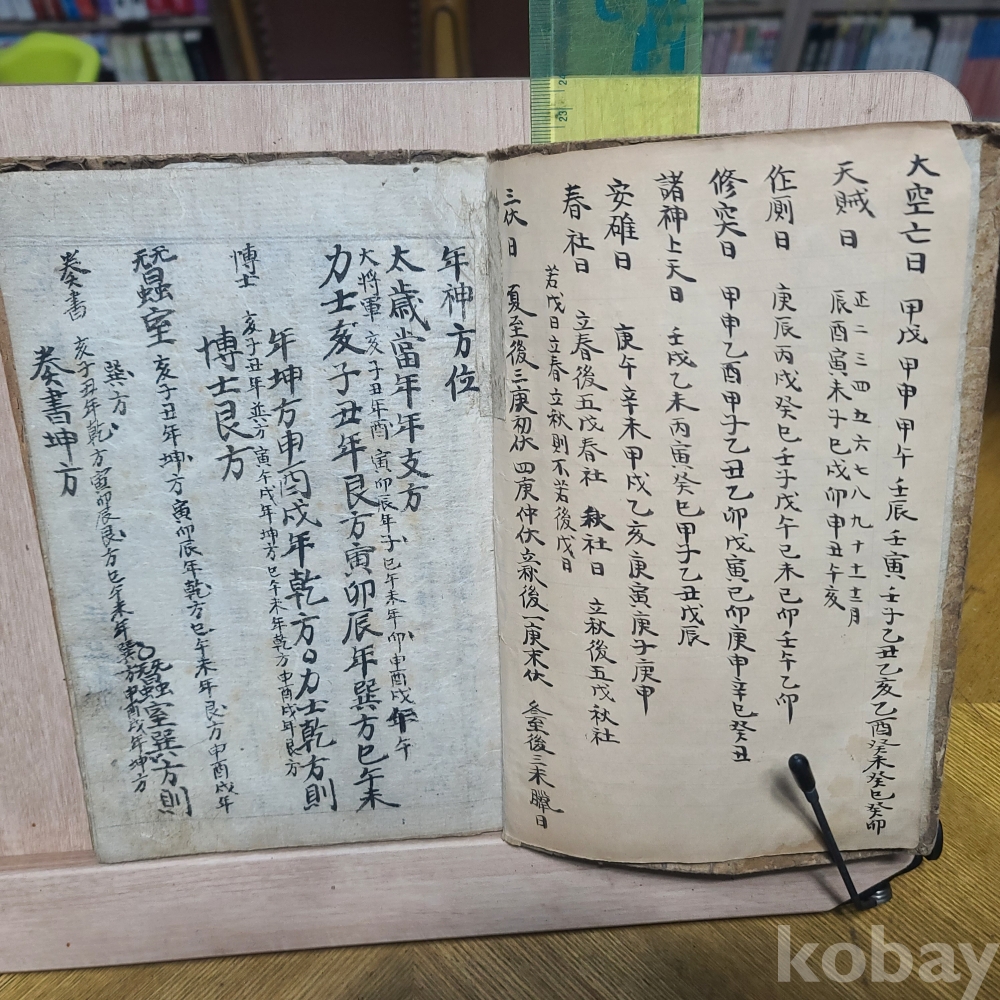 大空亡日 甲戌 甲申 甲午 壬辰 壬寅 壬子 乙丑 乙亥 乙酉 癸未 癸巳 癸卯
天賊日 正二三四五六七八九十十一十二月
辰酉寅未子巳戌卯申丑午亥
作厠日 庚辰 丙戌 癸巳 壬子 戊午 己未 己卯 壬午 乙卯
修突日 甲申 乙酉 甲子 乙丑 乙卯 戊寅 己卯 庚申 辛巳 癸丑
諸神上天日 壬戌 乙未 丙寅 癸巳 甲子 乙丑 戊辰
安碓日 庚午 辛未 甲戌 乙亥 庚寅 庚子 庚申
春社日 立春後五戊春社 秋社日 立秋後五戊秋社
若戊日立春立秋則不若後戊日
三伏日 夏至後三庚初伏 四庚仲伏 立秋後一庚末伏 冬至後三未臘日
年神方位
太歲當年年支方
大將軍 亥子丑年酉 寅卯辰年子 巳午未年卯 申酉戌年午
力士亥子丑年艮方寅卯辰年巽方巳午未
年坤方申酉戌年乾方○力士乾方則
博士艮方
博士 亥子丑年巽方 寅卯辰年坤方 巳午未年乾方 申酉戌年艮方
蠶室 亥子丑年坤方 寅卯辰年乾方 巳午未年艮方 申酉戌年
巽方 蠶室巽方則
奏書 亥子丑年乾方 寅卯辰艮方 巳午未年巽方 申酉戌年坤方
奏書坤方
23
24
kobay